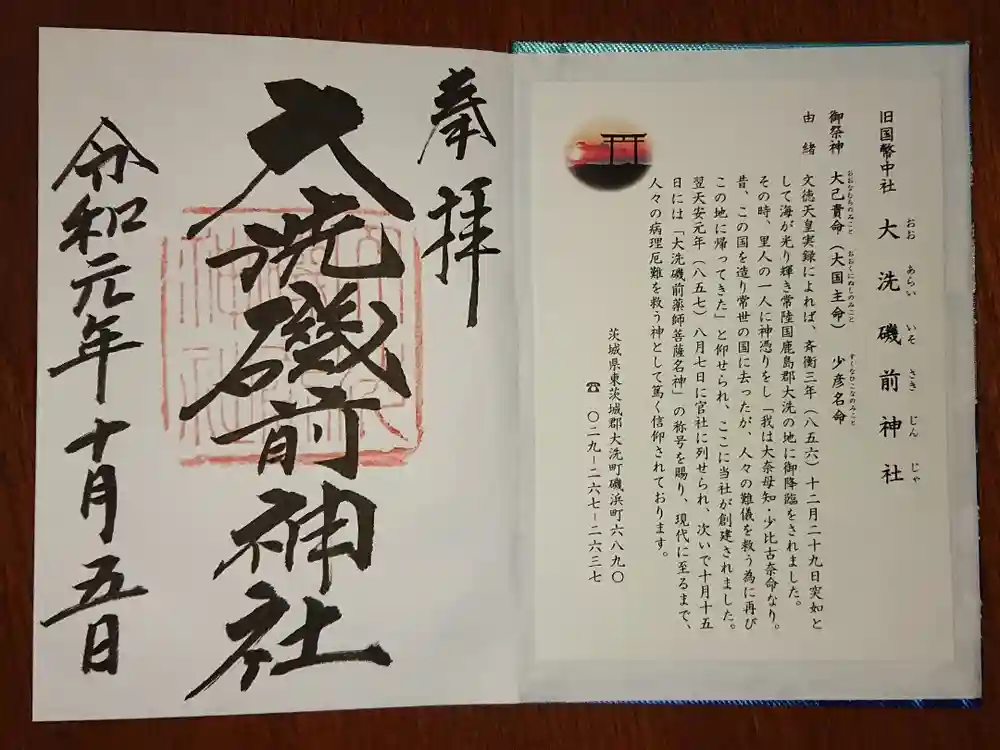 旧国幣中社 大洗磯前神社
おお あらい いそ さき じん じゃ
御祭神 大己貴命（大国主命） 少彦名命
おおなむちのみこと おおくにぬしのみこと すくなひこなのみこと
由緒
文徳天皇実録によれば、斉衡三年（八五六）十二月二十九日突如と
して海が光り輝き常陸国鹿島郡大洗の地に御降臨をされました。
その時、里人の一人に神憑りをし「我は大奈母知・少比古奈命なり。
昔、この国を造り常世の国に去ったが、人々の難儀を救う為に再び
この地に帰ってきた」と仰せられ、ここに当社が創建されました。
翌天安元年（八五七）八月七日に官社に列せられ、次いで十月十五
日には「大洗磯前薬師菩薩名神」の称号を賜り、現代に至るまで、
人々の病理厄難を救う神として篤く信仰されております。
茨城県東茨城郡大洗町磯浜町六八九〇
☎ 〇二九－二六七－二六三七
奉拝
大洗磯前神社
令和元年十月五日